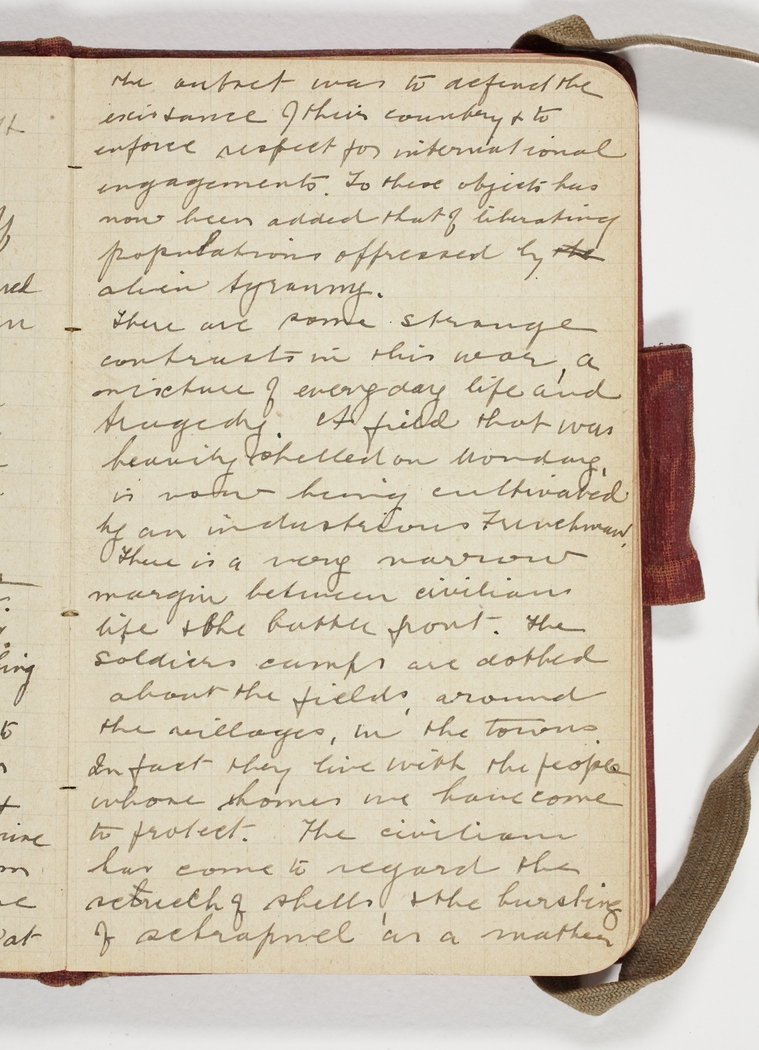 the outset was to defend the
existance of their country & to
enforce respect for international
engagements. To these objects has
now been added that of liberating
populations oppressed by the
alien tyranny.
There are some strange
contrasts in this war, a
mixture of everyday life and
tragedy. A field that was
heavily shelled on Monday,
is now being cultivated
by an industrious Frenchman.
There is a very narrow
margin between civilians
life & the battle front. The
soldiers camps are dotted
about the fields, around
the villages, in the towns
In fact they live with the people
whose homes we have come
to protect. The civilian
has come to regard the
sctreech of shells, & the bursting
of schrapnel as a matter